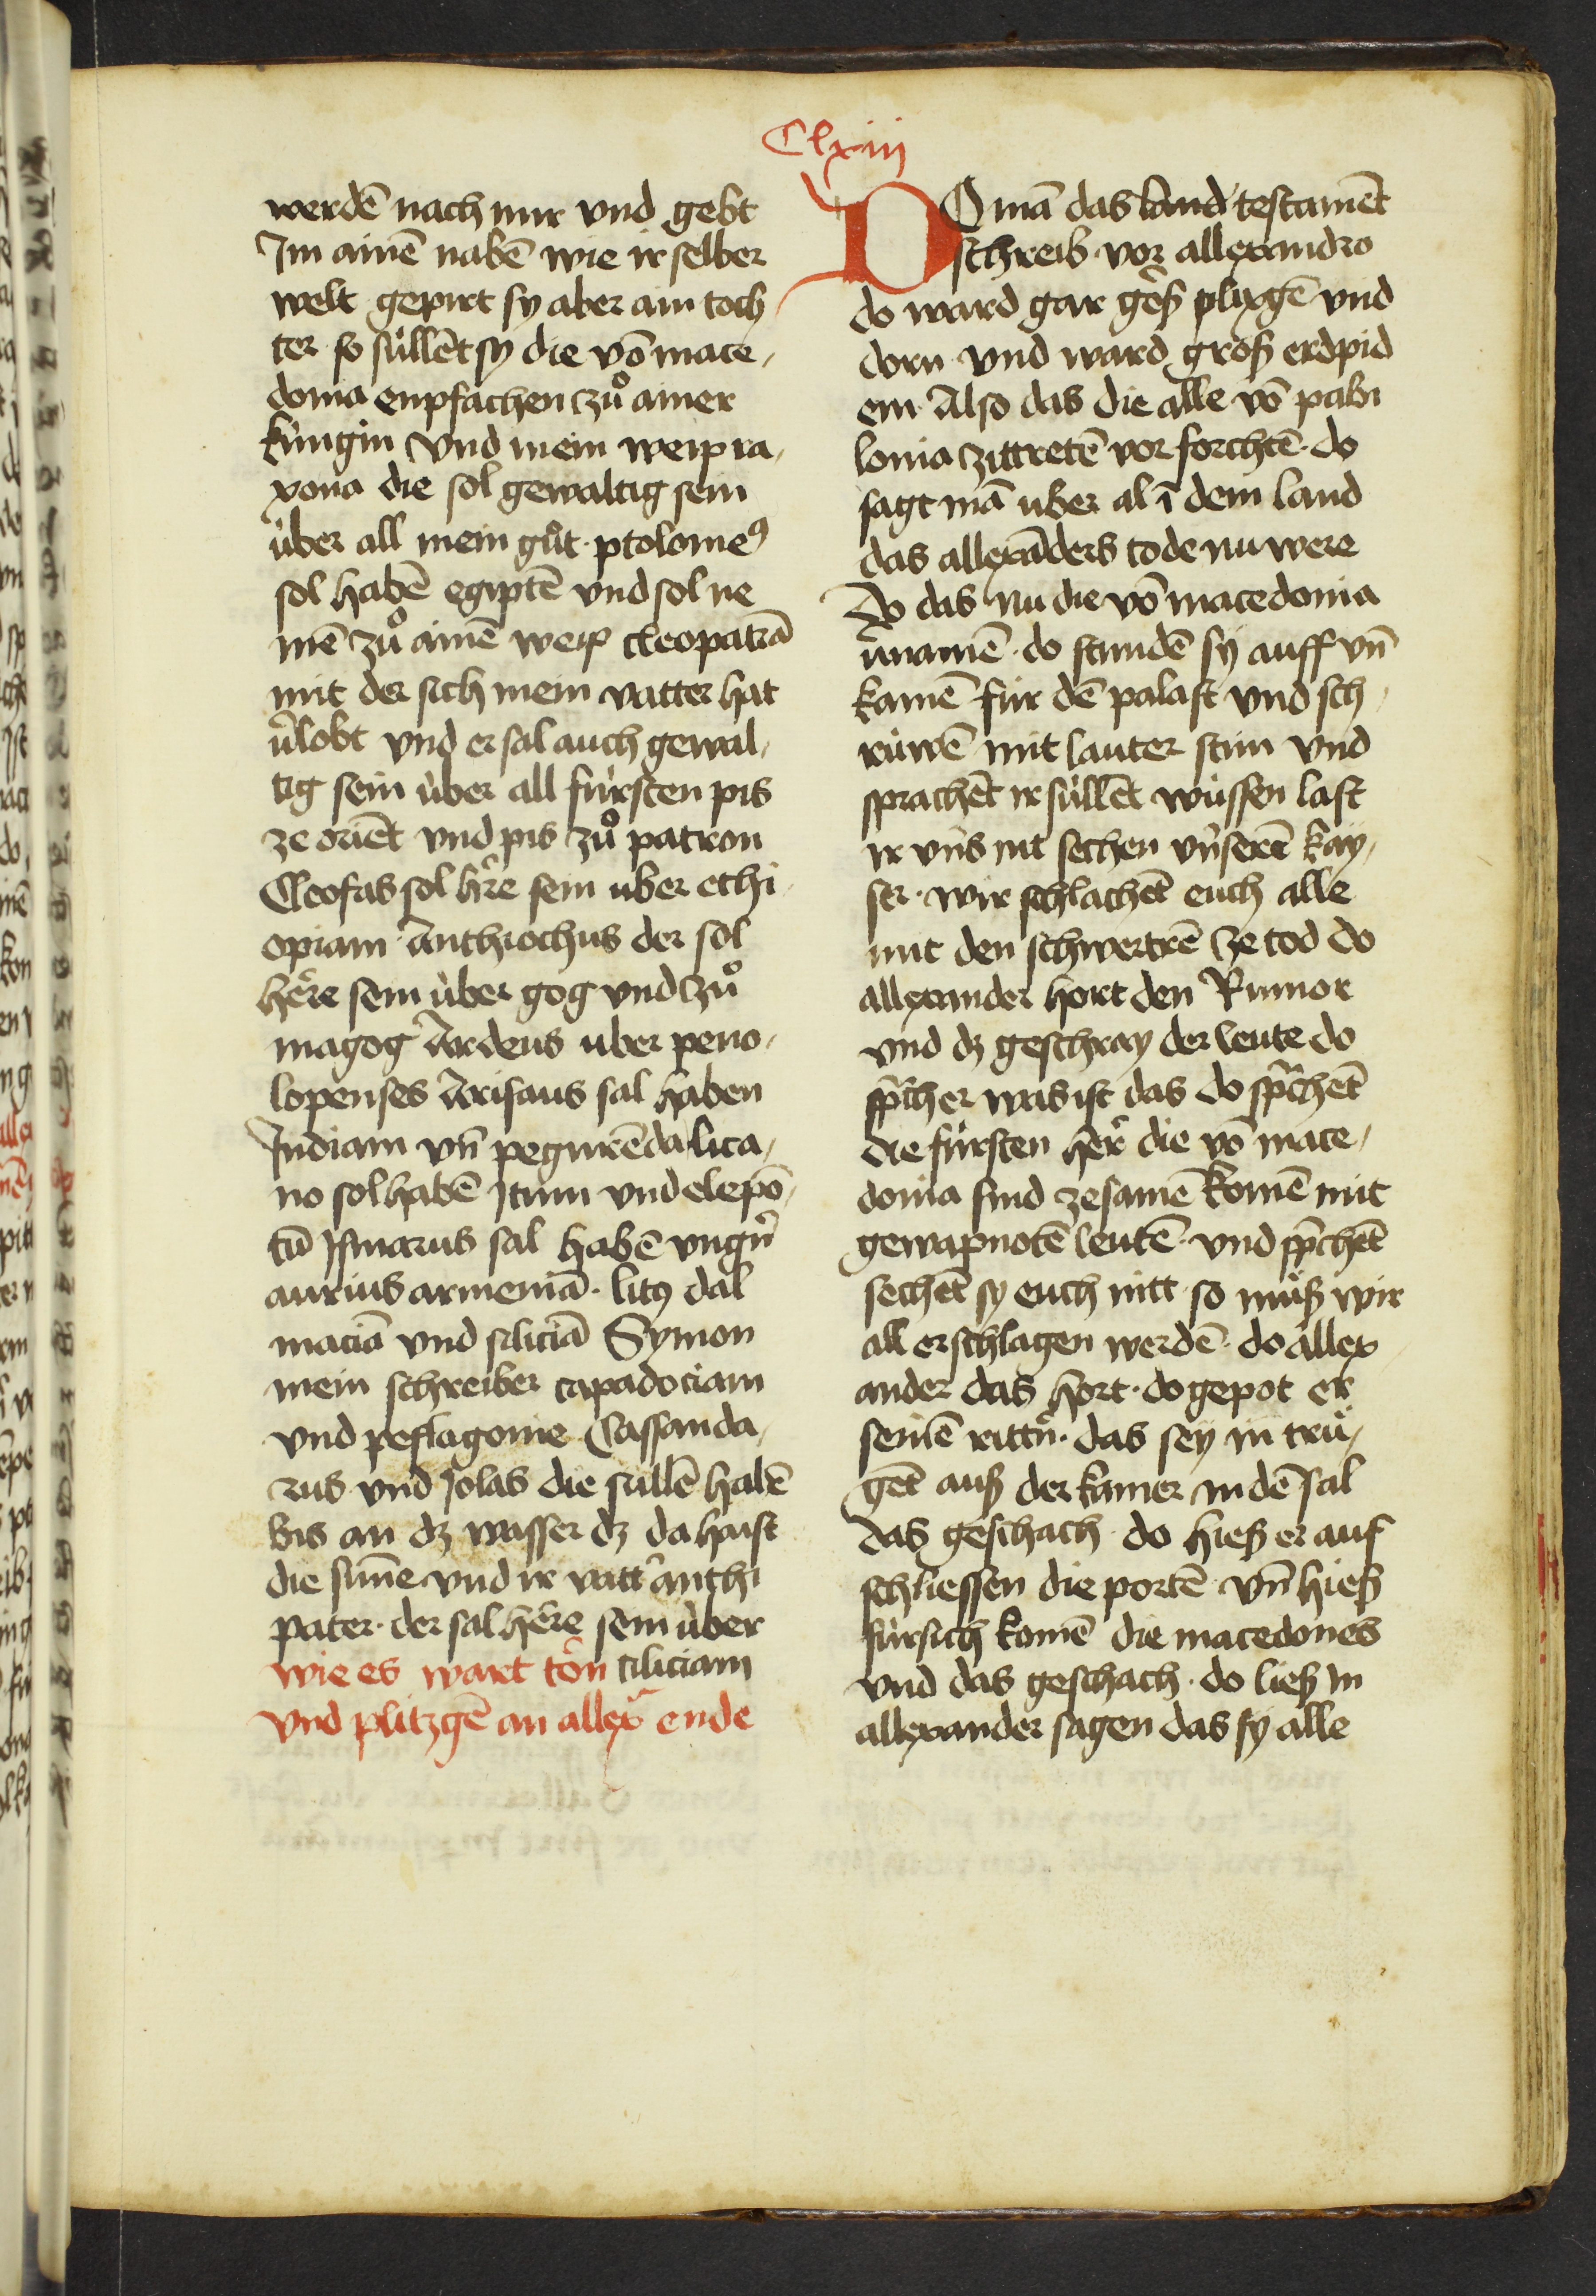 Clxiii
werdē nach mir vnd gebt
Im ainē nabē wie ir selber
welt gepirt sy aber ain toch
ter so süllēt sy die vō mace,
donia enpfachen zů ainer
küngin vnd mein weip ra,
xona die sol gewaltig sein
über all mein gůt · ptolomeꝰ
sol habē egiptē vnd sol ne
mē zů ainē weip cleopatrā
mit der sich mein vatter hat
v̓lobt vnd er sal auch gewal,
tig sein über all fürsten pis
ze oriēt vnd pis zů patron
Cleofas sol hr̄e sein uber ethi
opiam · Anthiochus der sol
hēre sein über gog vnd zů
magog Ardeus uber peno,
lopenses Arisaus sal haben
Indiam vn̄ pegnirēda lica,
no sol habē Itum vnd elepō,
tū Ismarus sal habē vngn̓
aurius armeniā · litꝰ dal
maciā vnd siliciā Symon
mein schreiber capadociam
vnd peflagonie Cassanda,
rus vnd Jolas die süllē habē
bis an dz wasser dz da haist
die sunne vnd ir vatt̓ anthi
pater · der sal hēre sein über
wie es wart ton ciliciam
vnd plitzgē an allex̓ ende
DO mā das land testamēt
schreib vor allexandro
do ward gar gros plixgē vnd
dorn vnd ward gross erdpid
em · Also das die alle vō pabi
lonia zittretē vor forchtē · do
sagt mā uber al ī dem land
das allexāders tode nu were
do das nu die vō macedonia
v̓namē · do stundē sy auff vn̄
kamē für dē palast vnd sch,
rüwē mit lauter stim vnd
sprachēt ir süllēt wüssen last
ir vns nit sechen vnserē kay,
sr · wir schlachēt euch alle
mit den schwertrē ze tod do
allexander hort den Rumor
vnd dz geschray der leute do
spr̄ch er was ist das do spr̄chēt
die fürsten her die vō mace,
donia sind zesamē komē mit
gewapnotē leutē · vnd spr̄chēt
sechēt sy euch nitt so müß wir
all erschlagen werdē · do allex
ander das hort · do gepot er
seinē rittn̓ · das sey in trü,
gēt auß der kamer in dē sal
das geschach · do hieß er auf
schliessen die portē vn̄ hieß
fürsich komē die macedones
vnd das geschach · do ließ In
allexander sagen das sy alle